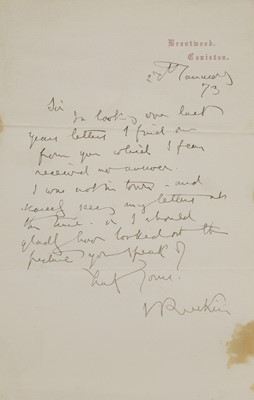 Brantwood.
Coniston.
2nd January
73
Sir
In looking over last
years letters I find one
from you which I fear
received no answer.
I was not in town - and
scarcely seeing my letters at
the time - or I should
gladly have looked at the
picture you speak of
Truly Yours.
J Ruskin